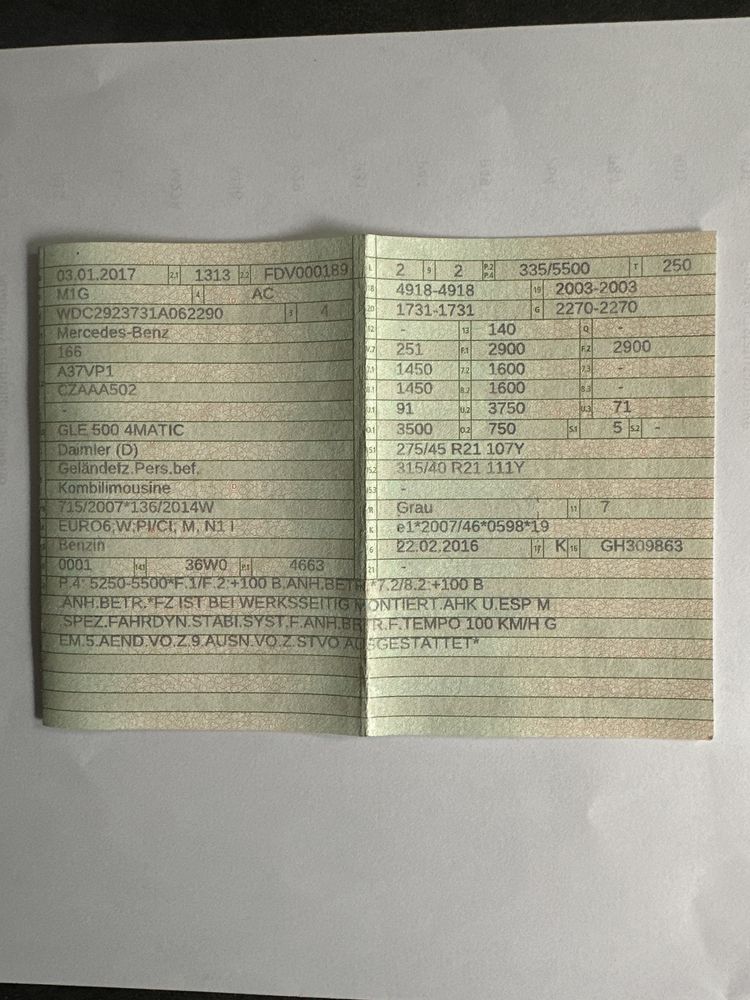 03.01.2017 2.1 1313 2.2 FDV000189
M1G 4 AC
WDC2923731A062290 3 4
Mercedes-Benz
166
A37VP1
CZAAA502
-
GLE 500 4MATIC
Daimler (D)
Geländefz.Pers.bef.
Kombilimousine
715/2007*136/2014W
EURO6;W;PI/CI; M, N1 I
Benzin
0001 14.1 36W0 P.1 4663
L 2 9 2 P.2 P.4 335/5500 T 250
18 4918-4918 19 2003-2003
20 1731-1731 G 2270-2270
12 - 13 140 Q -
V.7 251 F.1 2900 F.2 2900
7.1 1450 7.2 1600 7.3 -
8.1 1450 8.2 1600 8.3 -
U.1 91 U.2 3750 U.3 71
O.1 3500 O.2 750 S.1 5 S.2 -
15.1 275/45 R21 107Y
15.2 315/40 R21 111Y
15.3 -
R Grau 11 7
K e1*2007/46*0598*19
6 22.02.2016 17 K 16 GH309863
21 -
P.4: 5250-5500*F.1/F.2:+100 B.ANH.BETR.*7.2/8.2:+100 B
.ANH.BETR.*FZ IST BEI WERKSSEITIG MONTIERT.AHK U.ESP M
.SPEZ.FAHRDYN.STABI.SYST.F.ANH.BETR.F.TEMPO 100 KM/H G
EM.5.AEND.VO.Z.9.AUSN.VO.Z.STVO AUSGESTATTET*